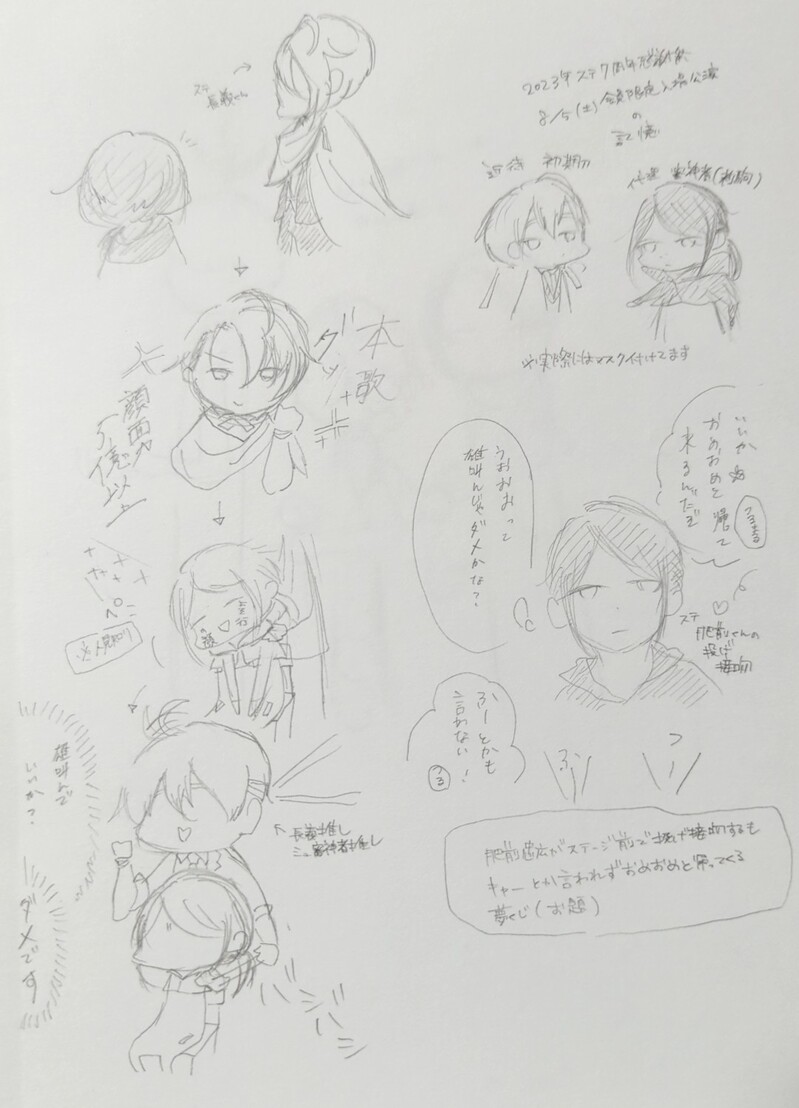 2023年ステ7周年感謝祭
8/5(土)会員限定入場公演
の
記憶
近侍 初期刀
審神者(初鍛)
※実際にはマスク付けてます
ステ
長義くん
本歌
グッ
顔面
億以上
ペニ
※人見知り
雄叫んで
いいか?
ダメです
長義推し
審神者推し
バシバシ
いいかぁ
おめおめと帰って
来るんだぞ
うおおおって
雄叫んじゃダメかな?
ステ
肥前くんの
投げ
接吻
ふーとかも
言わない!
フー
肥前忠広がステージ前で投げ接吻するも
キャーとか言われずおめおめと帰ってくる
夢くじ(お題)